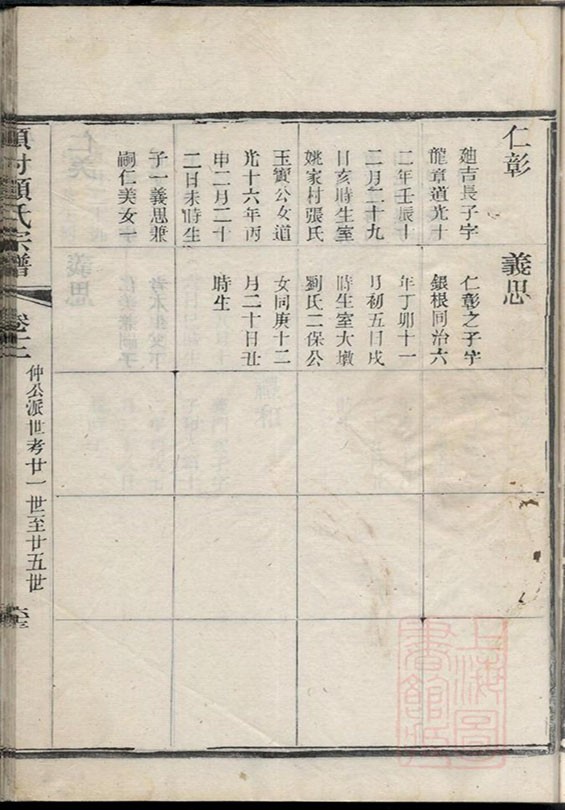 仁彰
廸吉長子字
龍章道光十
二年壬辰十
二月二十九
日亥時生室
姚家村張氏
玉寶公女道
光十六年丙
申二月二十
二日未時生
子一義思兼
嗣仁美女一
義思
仁彰之子字
銀根同治六
年丁卯十一
月初五日戌
時生室大墩
劉氏二保公
女同庚十二
月二十日丑
時生
村顧氏宗譜
卷十二
仲公派世考廿一世至廿五世
上海圖
書館藏